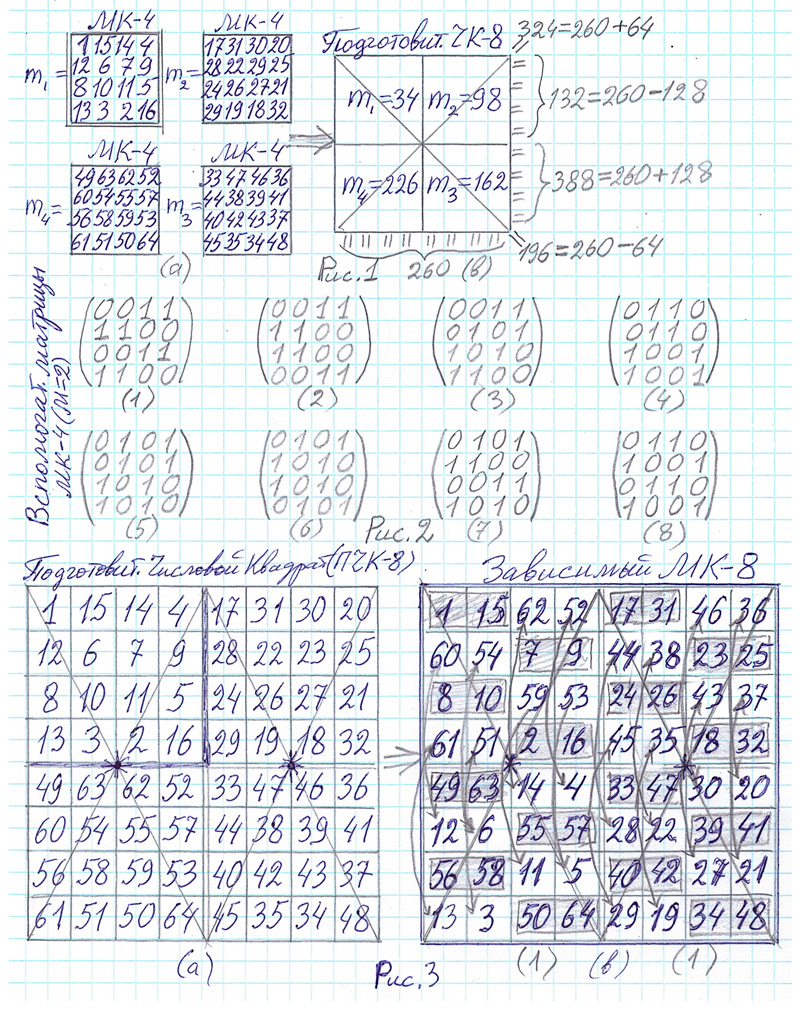 МК-4 МК-4
m₁= 1 15 14 4 m₂= 17 31 30 20
12 6 7 9 28 22 29 25
8 10 11 5 24 26 27 21
13 3 2 16 29 19 18 32
МК-4 МК-4
m₄= 49 63 62 52 m₃= 33 47 46 36
60 54 55 57 44 38 39 41
56 58 59 53 40 42 43 37
61 51 50 64 45 35 34 48
(а)
Подготовит. ЧК-8
324=260+64
m₁=34 m₂=98
132=260-128
m₄=226 m₃=162
388=260+128
196=260-64
Рис.1 260 (в)
Вспомогат. матрицы
МК-4 (М=2)
0 0 1 1
1 1 0 0
0 0 1 1
1 1 0 0
(1)
0 0 1 1
1 1 0 0
1 1 0 0
0 0 1 1
(2)
0 0 1 1
0 1 0 1
1 0 1 0
1 1 0 0
(3)
0 1 1 0
0 1 1 0
1 0 0 1
1 0 0 1
(4)
0 1 0 1
0 1 0 1
1 0 1 0
1 0 1 0
(5)
0 1 0 1
1 0 1 0
1 0 1 0
0 1 0 1
(6)
0 1 0 1
1 1 0 0
0 0 1 1
1 0 1 0
(7)
0 1 1 0
1 0 0 1
0 1 1 0
1 0 0 1
(8)
Рис.2
Подготовит. Числовой Квадрат (ПЧК-8)
1 15 14 4 17 31 30 20
12 6 7 9 28 22 23 25
8 10 11 5 24 26 27 21
13 3 2 16 29 19 18 32
49 63 62 52 33 47 46 36
60 54 55 57 44 38 39 41
56 58 59 53 40 42 43 37
61 51 50 64 45 35 34 48
(а)
Зависимый МК-8
1 15 62 52 17 31 46 36
60 54 7 9 44 38 23 25
8 10 59 53 24 26 43 37
61 51 2 16 45 35 18 32
49 63 14 4 33 47 30 20
12 6 55 57 28 22 39 41
56 58 11 5 40 42 27 21
13 3 50 64 29 19 34 48
(1) (в) (1)
Рис.3